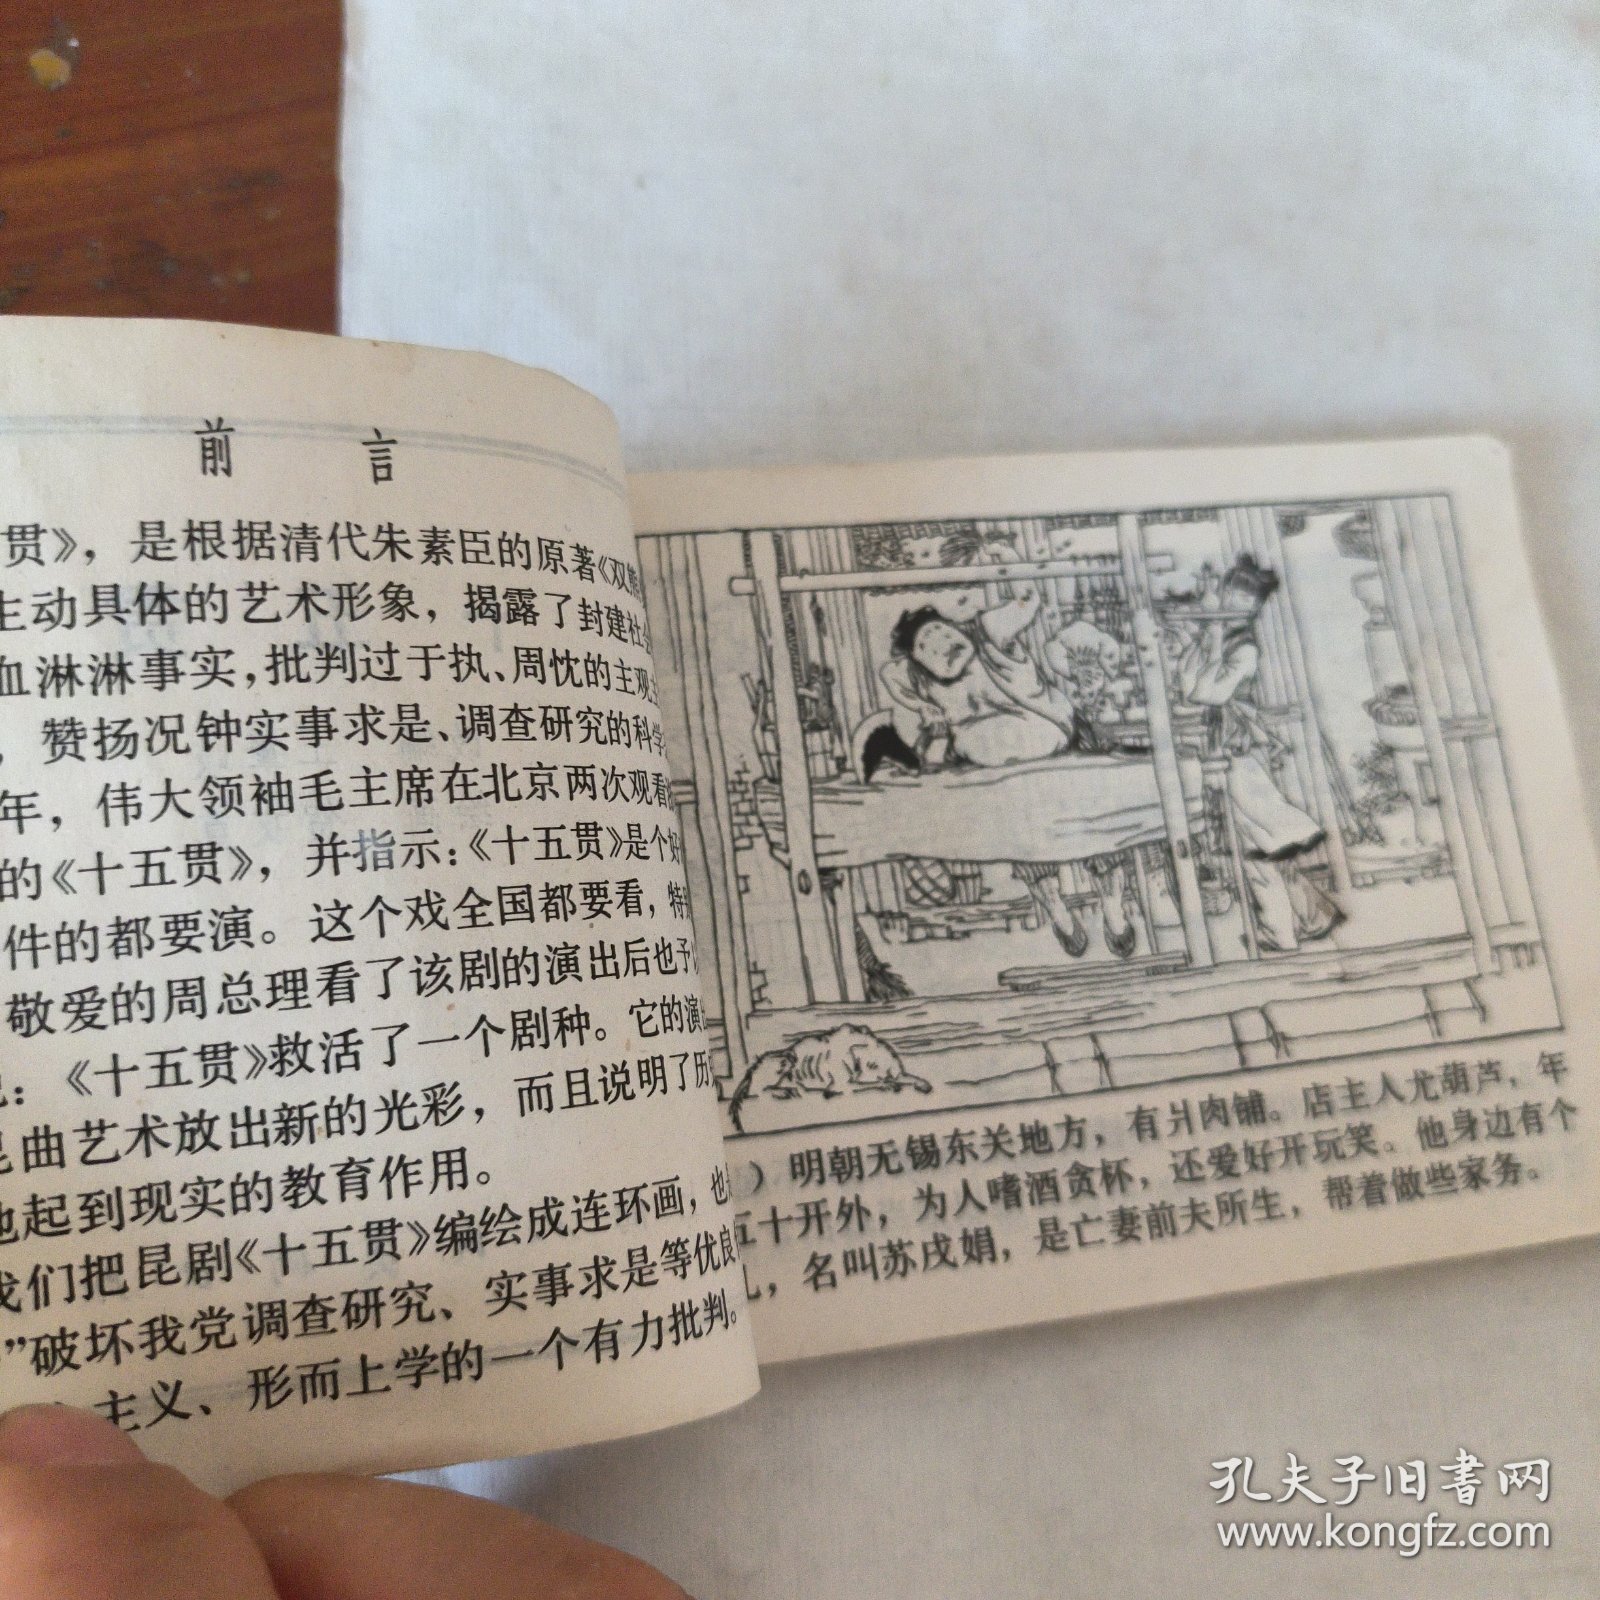 前 言
贯》，是根据清代朱素臣的原著《双熊
主动具体的艺术形象，揭露了封建社会
血淋淋事实，批判过于执、周忱的主观主
，赞扬况钟实事求是、调查研究的科学
年，伟大领袖毛主席在北京两次观看
的《十五贯》，并指示：《十五贯》是个好
件的都要演。这个戏全国都要看，特别
敬爱的周总理看了该剧的演出后也予以
：《十五贯》救活了一个剧种。它的演出
昆曲艺术放出新的光彩，而且说明了历
地起到现实的教育作用。
我们把昆剧《十五贯》编绘成连环画，也
”破坏我党调查研究、实事求是等优良
主义、形而上学的一个有力批判。
）明朝无锡东关地方，有爿肉铺。店主人尤葫芦，年
五十开外，为人嗜酒贪杯，还爱好开玩笑。他身边有个
儿，名叫苏戌娟，是亡妻前夫所生，帮着做些家务。
孔夫子旧书网
www.kongfz.com